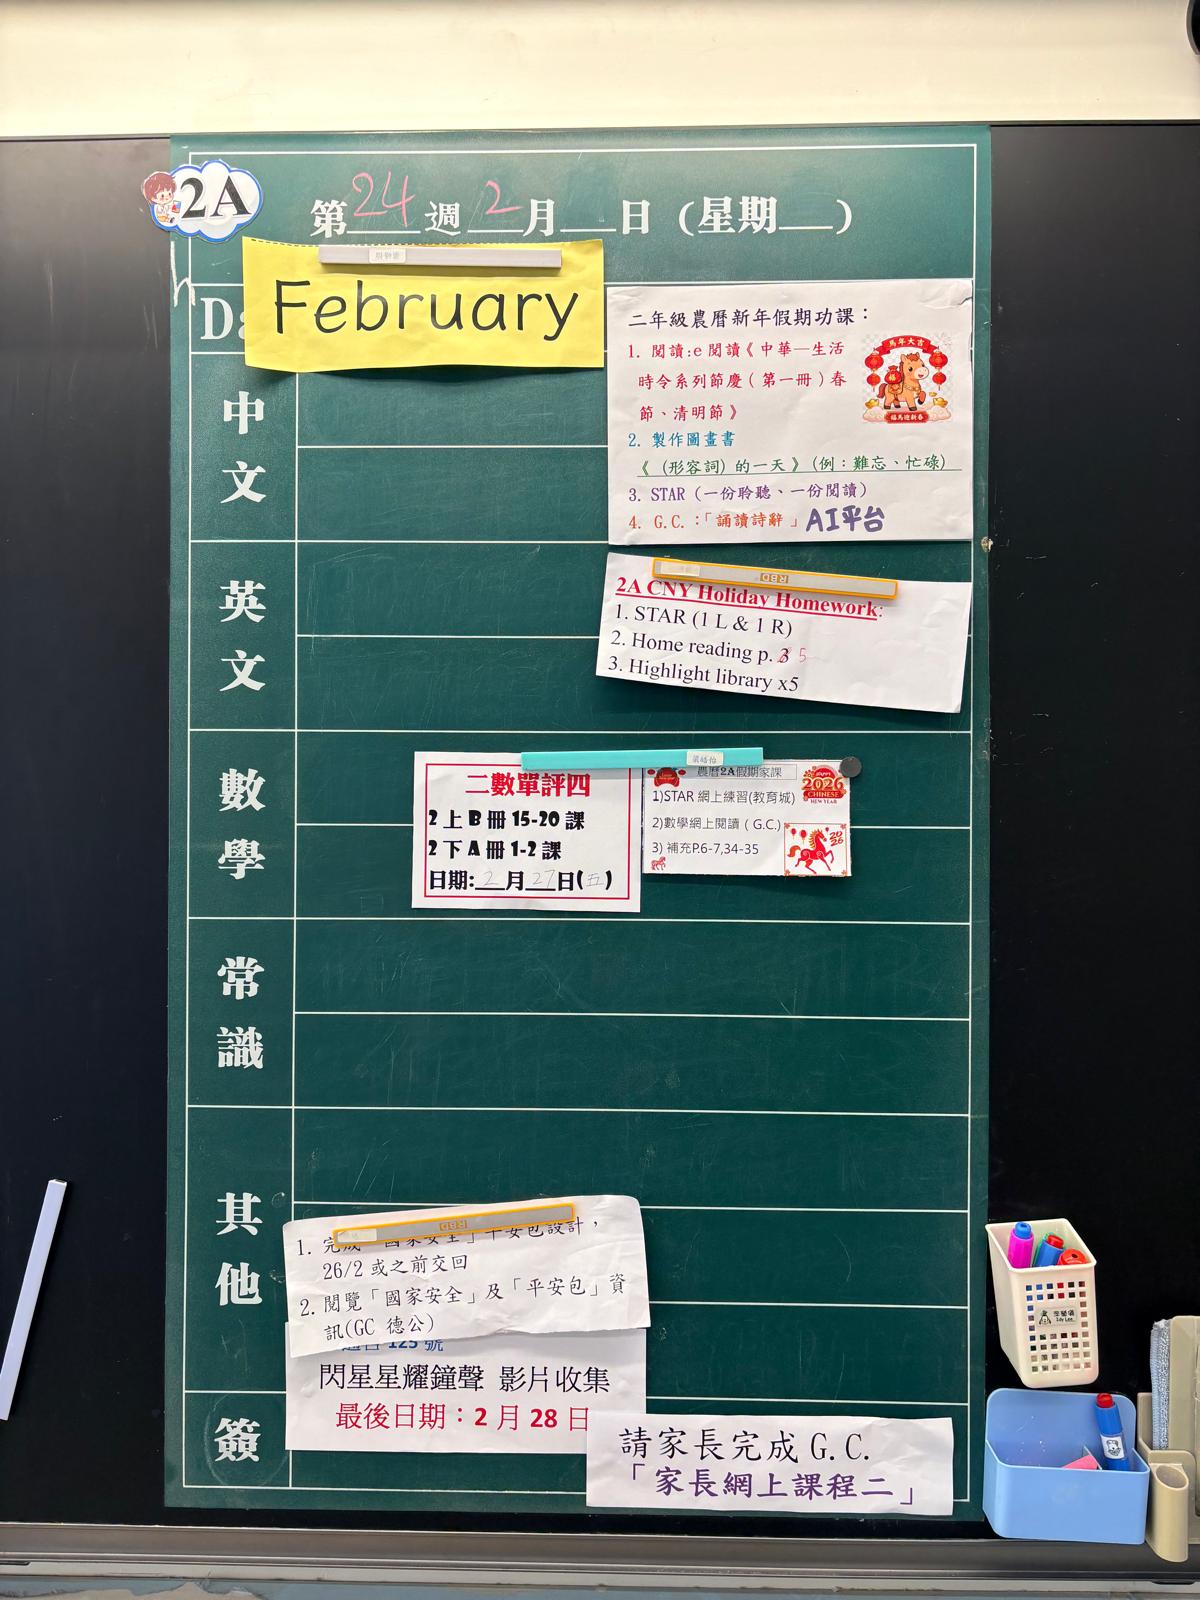 2A
第24週2月__日(星期__)
February
Da
二年級農曆新年假期功課：
1. 閱讀:e閱讀《中華—生活
時令系列節慶(第一冊)春
節、清明節》
2. 製作圖畫書
《 (形容詞) 的一天》(例：難忘、忙碌)
3. STAR (一份聆聽、一份閱讀)
4. G.C.：「誦讀詩辭」AI平台
馬年大吉
福馬迎新春
中文
英文
2A CNY Holiday Homework:
1. STAR (1 L & 1 R)
2. Home reading p. 5
3. Highlight library x5
數學
二數單評四
2上B冊15-20課
2下A冊1-2課
日期:2月27日(五)
農曆2A假期家課
1)STAR 網上練習(教育城)
2)數學網上閱讀 ( G.C.)
3) 補充P.6-7,34-35
HAPPY
2026
CHINESE
NEW YEAR
2026
常識
其他
1. 完成「國家安全」平安包設計，
26/2 或之前交回
2. 閱覽「國家安全」及「平安包」資
訊(GC 德公)
通告 125 號
閃星星耀鐘聲 影片收集
最後日期：2月28日
簽
請家長完成 G.C.
「家長網上課程二」